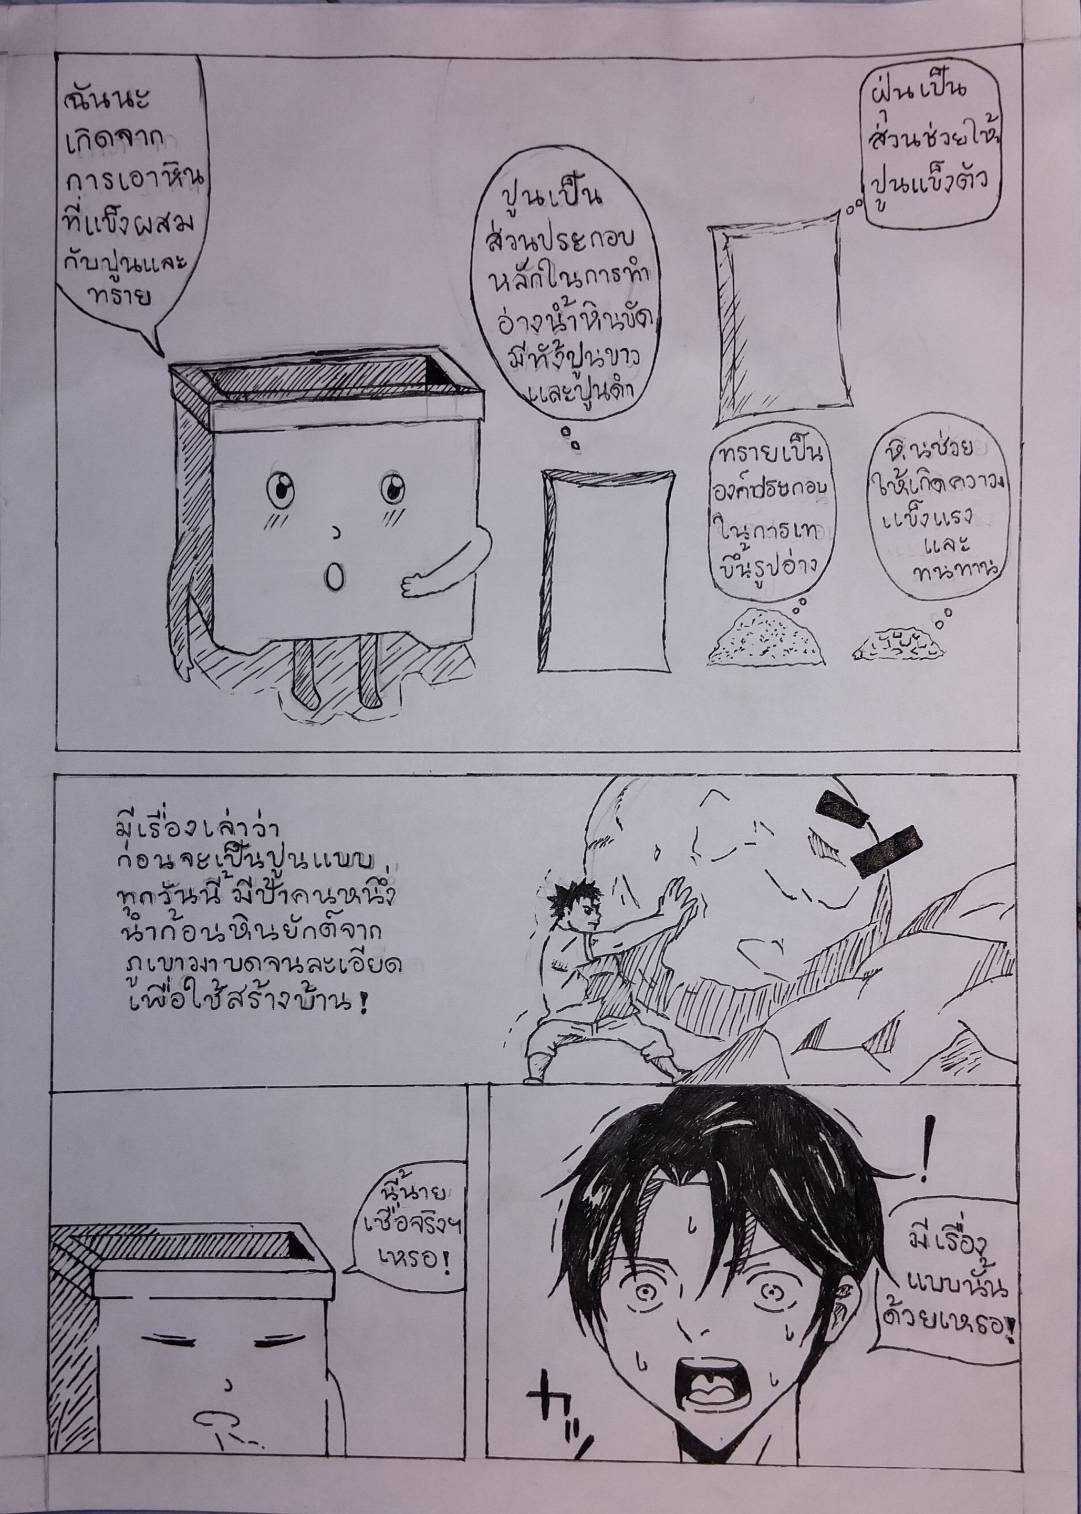 ฉันนะ
เกิดจาก
การเอาหิน
ที่แข็งผสม
กับปูนและ
ทราย
ปูนเป็น
ส่วนประกอบ
หลักในการทำ
อ่างน้ำหินขัด
มีทั้งปูนขาว
และปูนดำ
ฝุ่นเป็น
ส่วนช่วยให้
ปูนแข็งตัว
ทรายเป็น
องค์ประกอบ
ในการเท
ขึ้นรูปอ่าง
หินช่วย
ให้เกิดความ
แข็งแรง
และ
ทนทาน
มีเรื่องเล่าว่า
ก่อนจะเป็นปูนแบบ
ทุกวันนี้ มีป้าคนหนึ่ง
นำก้อนหินยักต์จาก
ภูเขามาบดจนละเอียด
เพื่อใช้สร้างบ้าน!
นี่นาย
เชื่อจริงๆ
เหรอ!
!
มีเรื่อง
แบบนั้น
ด้วยเหรอ!
ガッ